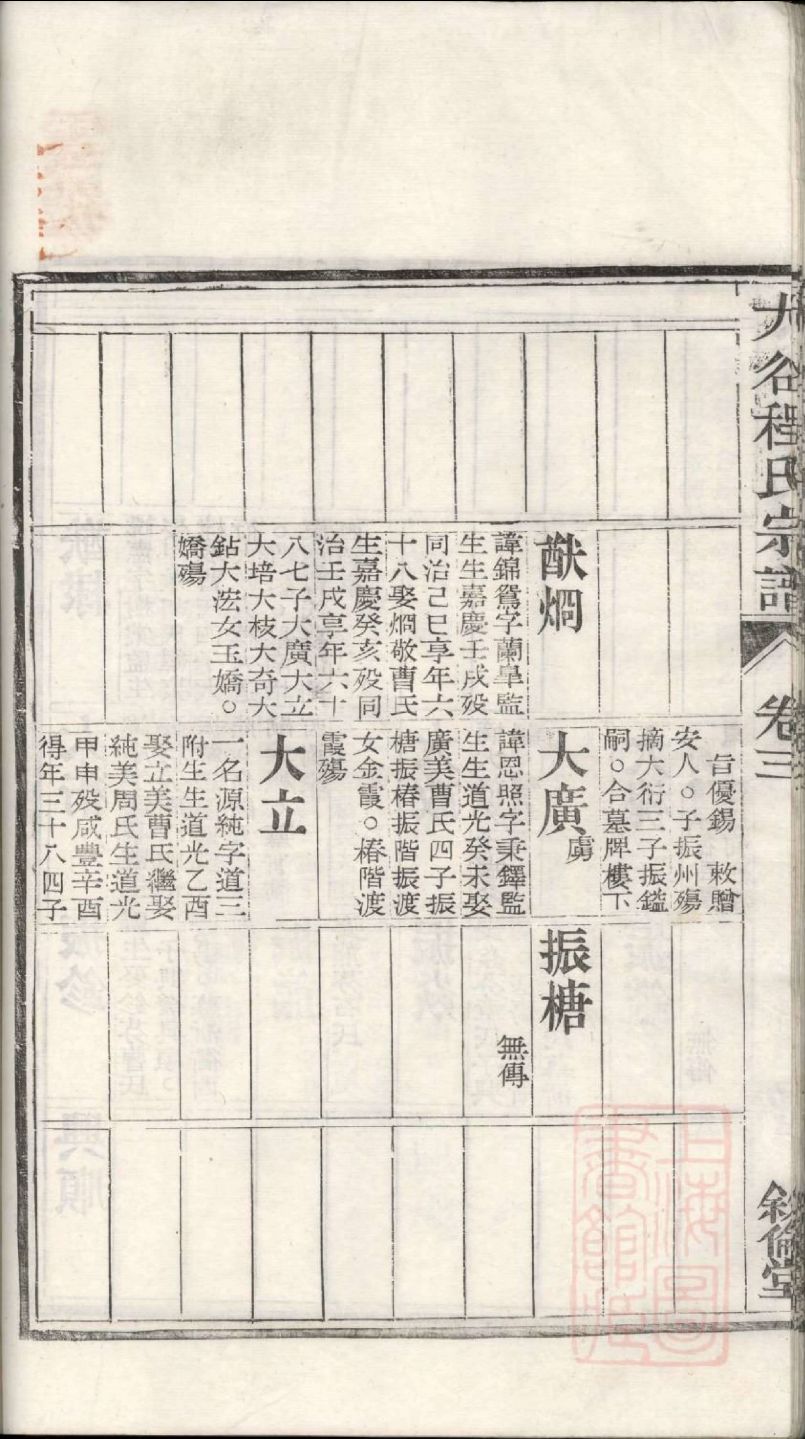 程氏宗譜
卷三
敘倫堂
猷烱
諱錦鴛字蘭臯監
生生嘉慶壬戌殁
同治己巳享年六
十八娶烱敬曹氏
生嘉慶癸亥殁同
治壬戌享年六十
八七子大廣大立
大培大枝大奇大
鉆大浤女玉嬌。
嬌殤
旨優錫 敕贈
安人。子振州殤
摘大衍三子振鎰
嗣。合墓牌樓下
大廣虜
諱恩照字秉鐸監
生生道光癸未娶
廣美曹氏四子振
榶振椿振階振渡
女金霞。椿階渡
霞殤
大立
一名源純字道三
附生生道光乙酉
娶立美曹氏繼娶
純美周氏生道光
甲申殁咸豐辛酉
得年三十八四子
振榶
無傳
上海圖書館藏